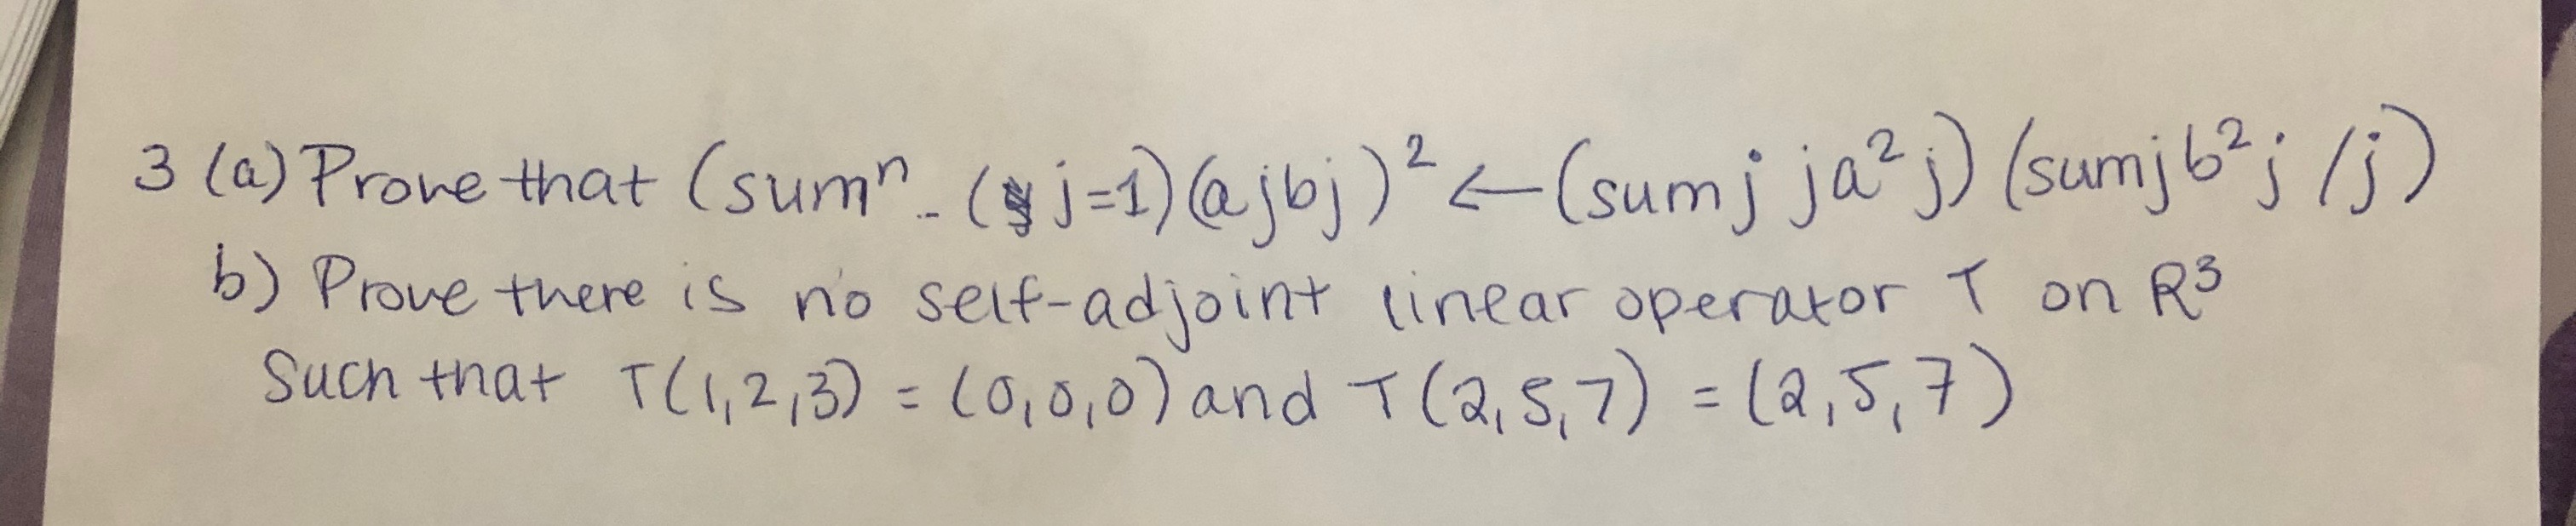 3 (a) Prove that (sumⁿ_(j=1)(ajbj)² <— (sumj ja²j)(sumjb²j/j)
b) Prove there is no self-adjoint linear operator T on R³
Such that T(1,2,3) = (0,0,0) and T(2,5,7) = (2,5,7)